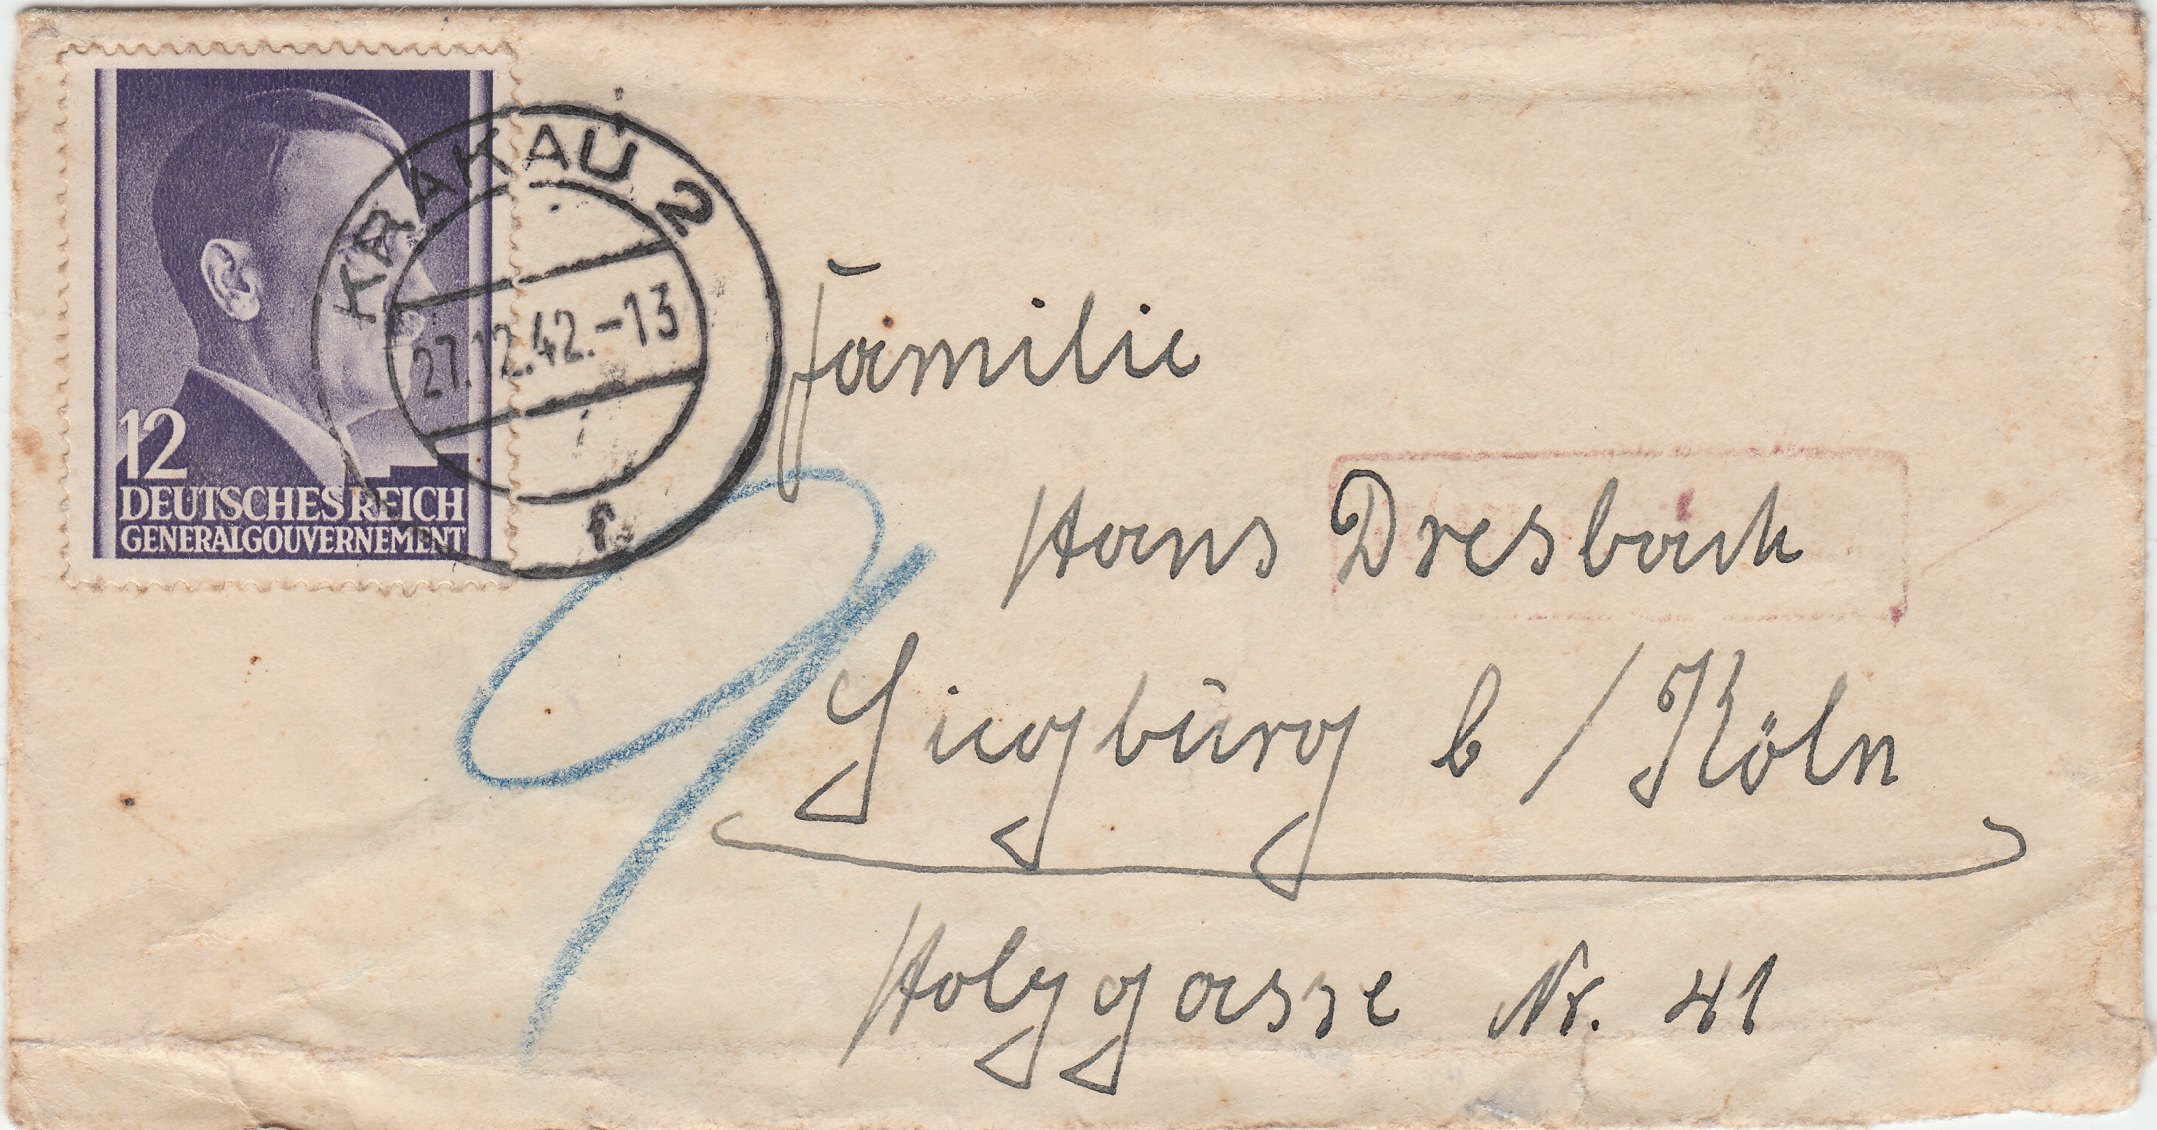 KRAKAU 2
27.12.42.-13
f
12
DEUTSCHES REICH
GENERALGOUVERNEMENT
Familie
Hans Dresbach
Siegburg b/Köln
Holzgasse Nr. 41